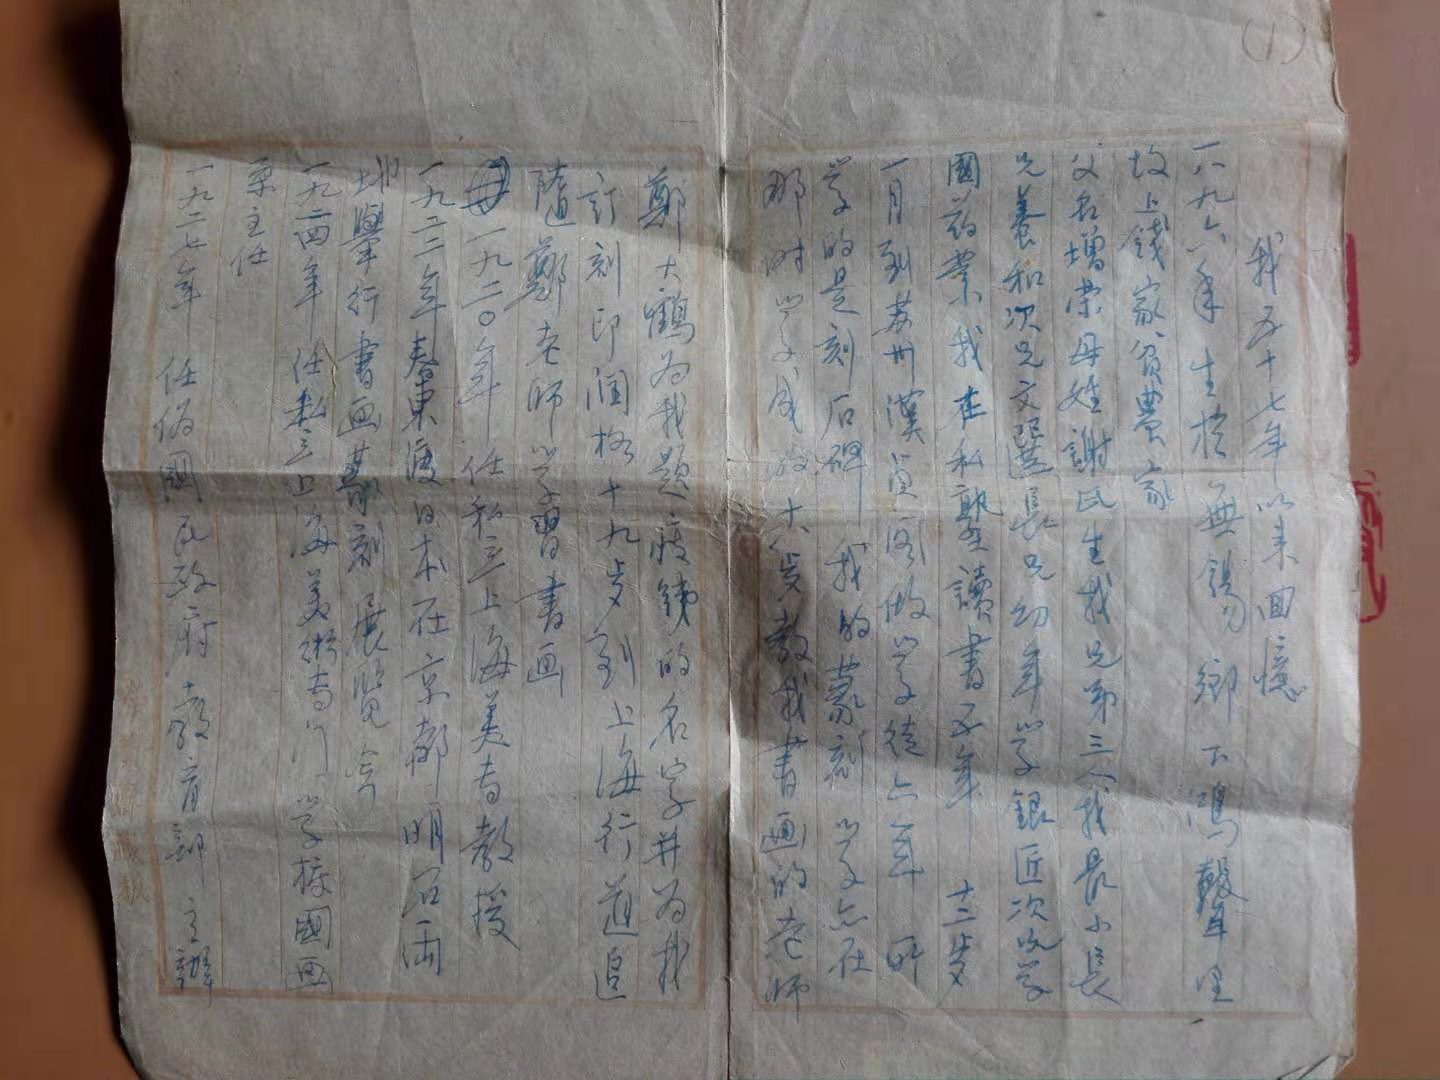 (1)
我五十七年以来回憶
一八九六年 生於 無錫 鄉下鴻聲里
坟上錢家貧農家
父名增荣母姓謝氏生我兄弟三人我最小長
兄養和次兄文選長兄幼年学銀匠次兄学
國药業 我在私塾讀書五年 十三岁
一月到苏州漢貞阁做学徒六年 所
学的是刻石碑 我的篆刻学亦在
那时学成的 十八岁教我書画的老师
鄭大鶴为我題瘦鐵的名字并为我
訂刻印润格 十九岁到上海行道追
随鄭老师学習書画
一九二〇年 任私立上海美专教授
一九二二年春東渡日本在京都 明石両
地舉行書画篆刻展览会
一九二四年 任私立上海美術专门学校國画
系主任
一九二七年 任伪國民政府教育部主辦